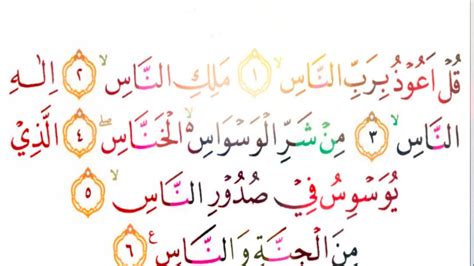 قُلْ اَعُوْذُ بِرَبِّ النَّاسِۙ ١ مَلِكِ النَّاسِۙ ٢ اِلٰهِ
النَّاسِۙ ٣ مِنْ شَرِّ الْوَسْوَاسِ ەۙ الْخَنَّاسِۖ ٤ الَّذِيْ
يُوَسْوِسُ فِيْ صُدُوْرِ النَّاسِۙ ٥
مِنَ الْجِنَّةِ وَالنَّاسِ ࣖ ٦